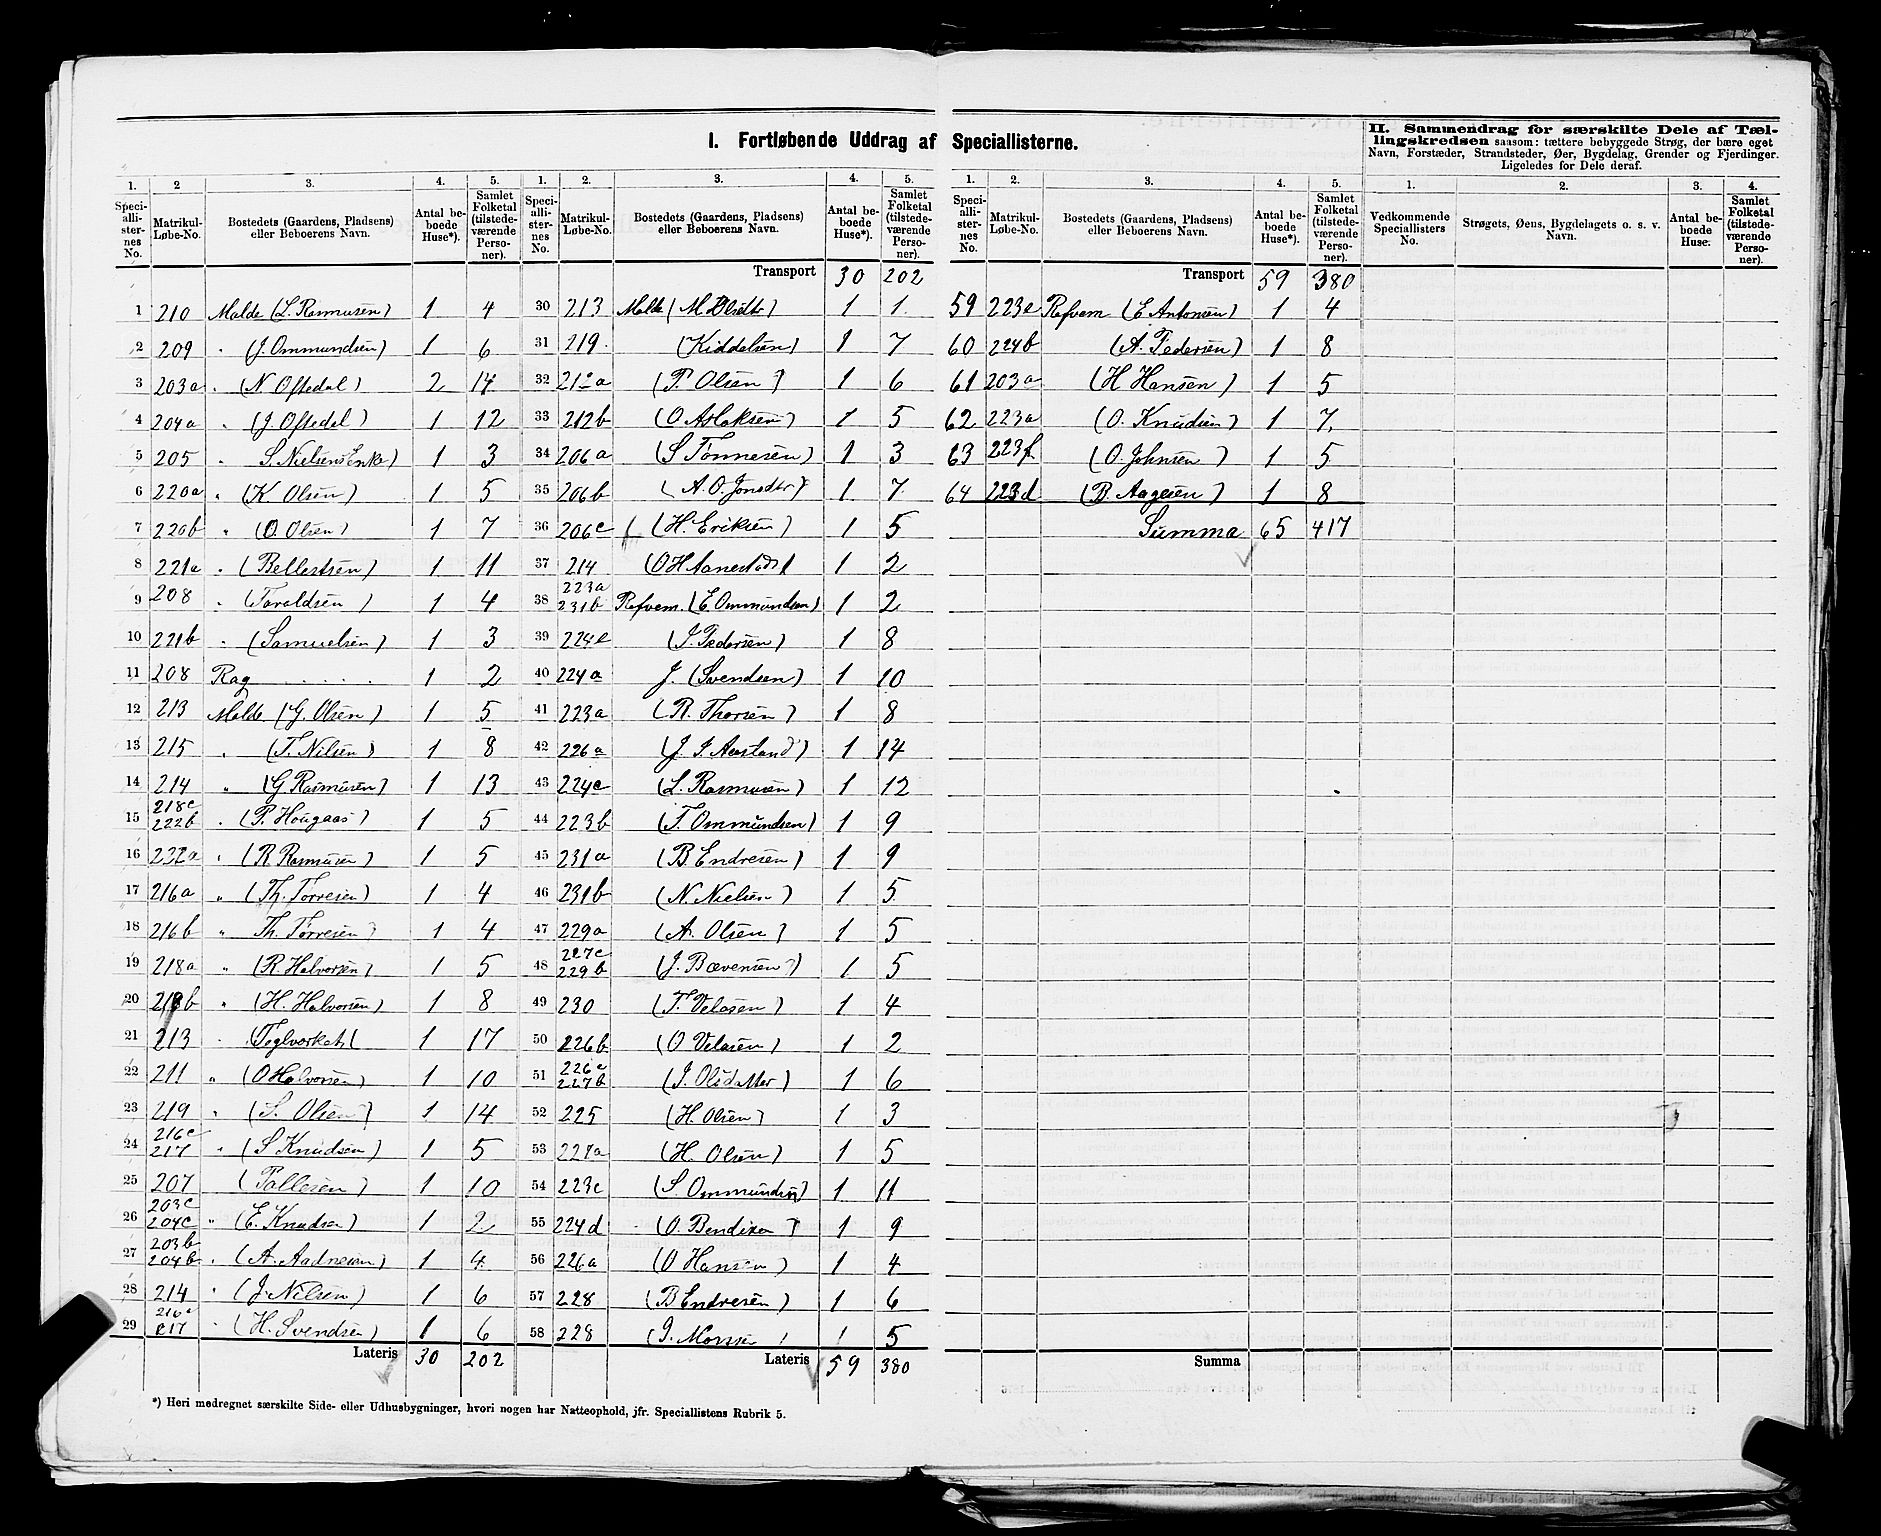 I. Fortløbende Uddrag af Speciallisterne.
1. 2 3. 4. 5.
Speciallisternes No. Matrikul-Løbe-No. Bostedets (Gaardens, Pladsens) eller Beboerens Navn. Antal beboede Huse*). Samlet Folketal (tilstedeværende Personer).
1 210 Malde (L. Rasmusen) 1 4
2 209 " (J. Ommundsen) 1 6
3 203a " (N. Oftedal) 2 14
4 204a " (J. Oftedal) 1 12
5 205 " S. Nielsens Enke) 1 3
6 220a " (K Olsen) 1 5
7 220b " (O. Olsen) 1 7
8 221a " (Bellestsen) 1 11
9 208 " (Taraldsen) 1 4
10 221b " (Samuelsen) 1 3
11 208 Rag 1 2
12 213 Malde (G. Olsen) 1 5
13 215 " (T. Nilsen) 1 8
14 214 " (G Rasmusen) 1 13
15 218c 222b " (P. Hougaas) 1 5
16 232a " (R Rasmusen) 1 5
17 216a " (Th. Torresen) 1 4
18 216b " Th. Torresen) 1 4
19 218a " (R. Halvorsen) 1 5
20 218b " (H. Halvorsen) 1 8
21 213 " (Teglverket) 1 17
22 211 " (O Halvorsen) 1 10
23 219 " (S. Olsen) 1 14
24 216c 217 " (S Knudsen) 1 5
25 207 (Pallesen) 1 10
26 203c 204c " (E. Knudsen) 1 2
27 203b 204b " (A. Aadnesen) 1 4
28 214 " (J. Nilsen) 1 6
29 216c 217 " (H. Svendsen) 1 6
Lateris 30 202
*) Heri medregnet særskilte Side- eller Udhusbygninger, hvori nogen har Natteophold, jfr. Speciallistens Rubrik 5.
1. 2. 3. 4. 5.
Speciallisternes No. Matrikul-Løbe-No. Bostedets (Gaardens, Pladsens) eller Beboerens Navn. Antal beboede Huse*). Samlet Folketal (tilstedeværende Personer).
Transport 30 202
30 213 Malde (M Olsdtr) 1 1
31 219 (Kiddelsen) 1 7
32 212a (P. Olsen) 1 6
33 212b (O. Aslaksen) 1 5
34 206a (S Tønnesen) 1 3
35 206b (A. O. Jonsdtr) 1 7
36 206c (H. Eriksen) 1 5
37 214 (O H Aanestad) 1 2
38 223a 231b Refvem (E. Ommundsen) 1 2
39 224e (J. Pedersen) 1 8
40 224a J. (Svendsen) 1 10
41 223a (R. Thorsen) 1 8
42 226a (J. J Aarstad) 1 14
43 224c (L. Rasmusen) 1 12
44 223b (T. Ommundsen) 1 9
45 231a (B Endresen) 1 9
46 231b (N. Nielsen) 1 5
47 229a (A. Olsen) 1 5
48 227c 229b (J. Bævensen) 1 5
49 230 (T. Velasen) 1 4
50 226b (O Velasen) 1 2
51 226c 227b (J. Olsdatter) 1 6
52 225 (H. Olsen) 1 3
53 227a (H. Olsen) 1 5
54 223c (S. Ommundsen) 1 11
55 224d (O. Bendixen) 1 9
56 226a (O Hansen) 1 4
57 228 (B Endresen) 1 6
58 228 (J. Morssen) 1 5
Lateris 59 380
1. 2. 3. 4. 5.
Speciallisternes No. Matrikul-Løbe-No. Bostedets (Gaardens, Pladsens) eller Beboerens Navn. Antal beboede Huse*). Samlet Folketal (tilstedeværende Personer).
Transport 59 380
59 223e Refvem (E Antonsen) 1 4
60 224b (A. Pedersen) 1 8
61 203a (H Hansen) 1 5
62 223a (O. Knudsen) 1 7
63 223f (O. Johnsen) 1 5
64 223d (B. Aagesen) 1 8
Summa 65 417
Summa
II. Sammendrag for særskilte Dele af Tællingskredsen saasom: tættere bebyggede Strøg, der bære eget Navn, Forstæder, Strandsteder, Øer, Bygdelag, Grender og Fjerdinger. Ligeledes for Dele deraf.
1. 2. 3. 4.
Vedkommende Speciallisters No. Strøgets, Øens, Bygdelagets o. s. v. Navn. Antal beboede Huse. Samlet Folketal (tilstedeværende Personer).